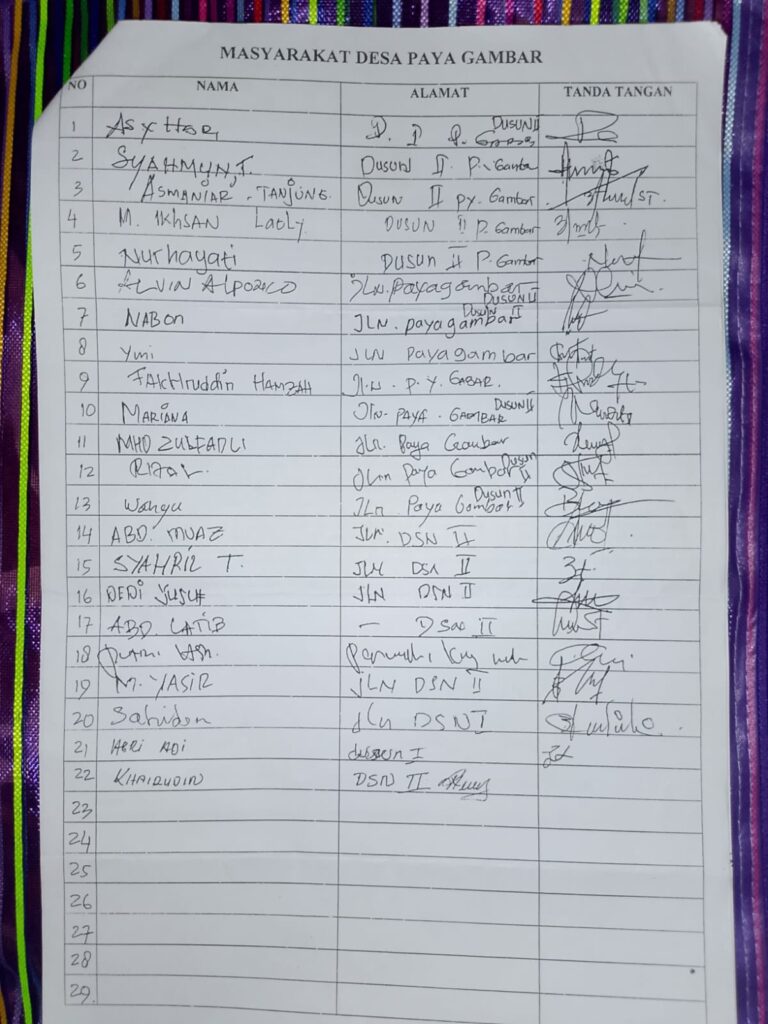 MASYARAKAT DESA PAYA GAMBAR
NO NAMA ALAMAT TANDA TANGAN
1 ASYHARI D. DUSUN II
2 SYAHMUN, T. DUSUN II. P. Gambar
3 ASMANIAR. TANJUNG. DUSUN II py. Gambar
4 M. IKHSAN Laoly DUSUN II P. Gambar
5 Nurhayati DUSUN II P. Gambar
6 ALVIN JLN. Payagambar DUSUN II
7 NABON JLN. payagambar DUSUN II
8 Yuni JLN Payagambar
9 FAKHruddin HAMZAH JLN. P. Y. GABAR.
10 MARIANA JLN. PAYA. GAMBAR DUSUN II
11 MHD ZULFADLI JLn. Paya Gambar
12 RIZAL JLn Paya Gambar Dusun II
13 Wahyu JLn Paya Gambar Dusun II
14 ABD. MUAZ JLN. DSN II
15 SYAHRIL T. JLN DSN II
16 DEDI YUSUF JLN DSN II
17 ABD. LATIB – DSN II
18
19 M. YASIR JLN DSN II
20 Sahidan JLn DSN I
21 HERI ADI dusun I
22 KHAIRUDIN DSN II
23
24
25
26
27
28
29